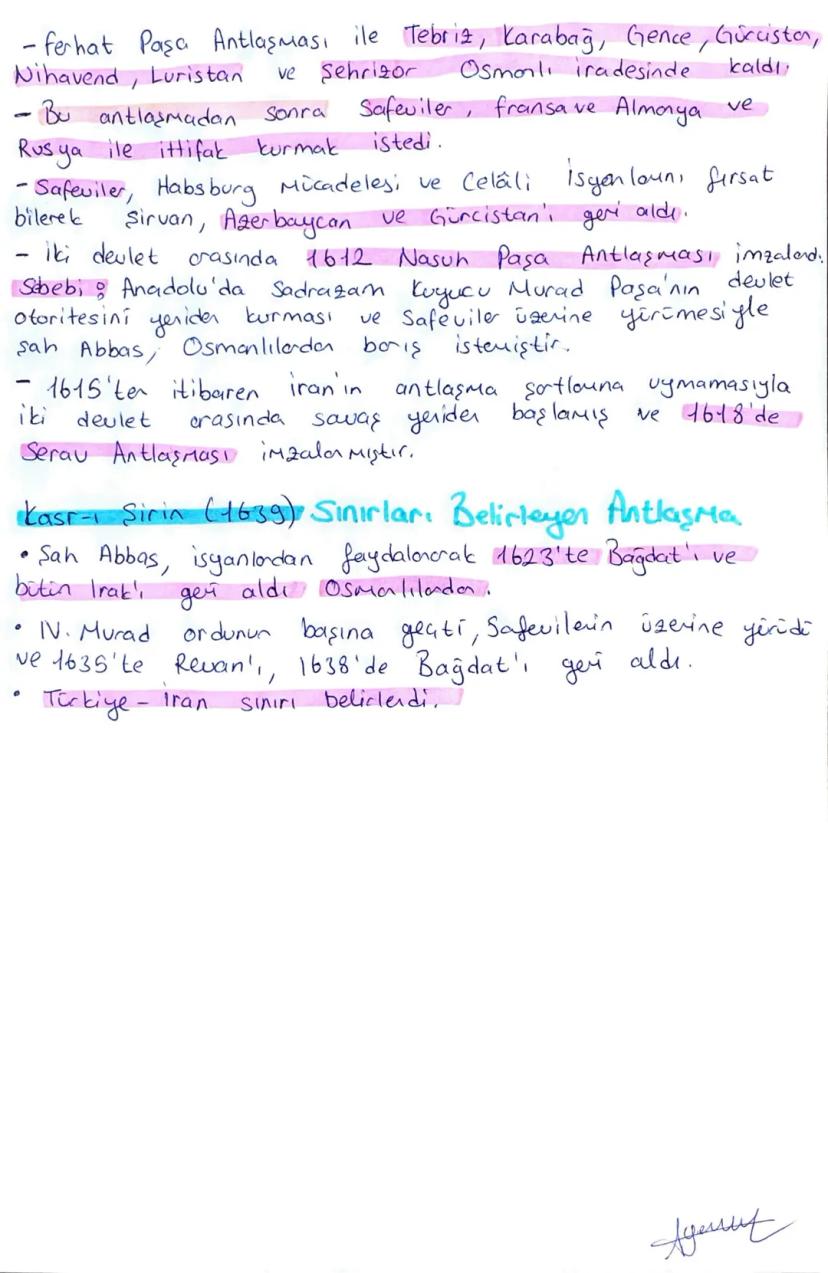 - Ferhat Paşa Antlaşması ile Tebriz, Karabağ, Gence, Gürcistan,
Nihavend, Luristan ve Şehrizor Osmanlı iradesinde kaldı.
- Bu antlaşmadan sonra Safeviler, fransa ve Almanya ve
Rusya ile ittifak kurmak istedi.
- Safeviler, Habsburg Mücadelesi ve Celâli İsyanlarını fırsat
bilerek Şirvan, Azerbaycan ve Gürcistan'ı geri aldı.
- İki devlet arasında 1612 Nasuh Paşa Antlaşması imzalandı.
Sebebi : Anadolu'da Sadrazam Kuyucu Murad Paşa'nın devlet
otoritesini yeniden kurması ve Safeviler üzerine yürümesiyle
şah Abbas, Osmanlılardan barış istemiştir.
- 1615'ten itibaren İran'ın antlaşma şartlarına uymamasıyla
iki devlet arasında savaş yeniden başlamış ve 1618'de
Serav Antlaşması imzalanmıştır.
Kasr-ı Şirin (1639) Sınırları Belirleyen Antlaşma
• Şah Abbas, isyanlardan faydalanarak 1623'te Bağdat'ı ve
bütün Irak'ı geri aldı Osmanlılardan.
• IV. Murad ordunun başına geçti, Safevilerin üzerine yürüdü
ve 1635'te Revan'ı, 1638'de Bağdat'ı geri aldı.
• Türkiye - İran sınırı belirlendi.